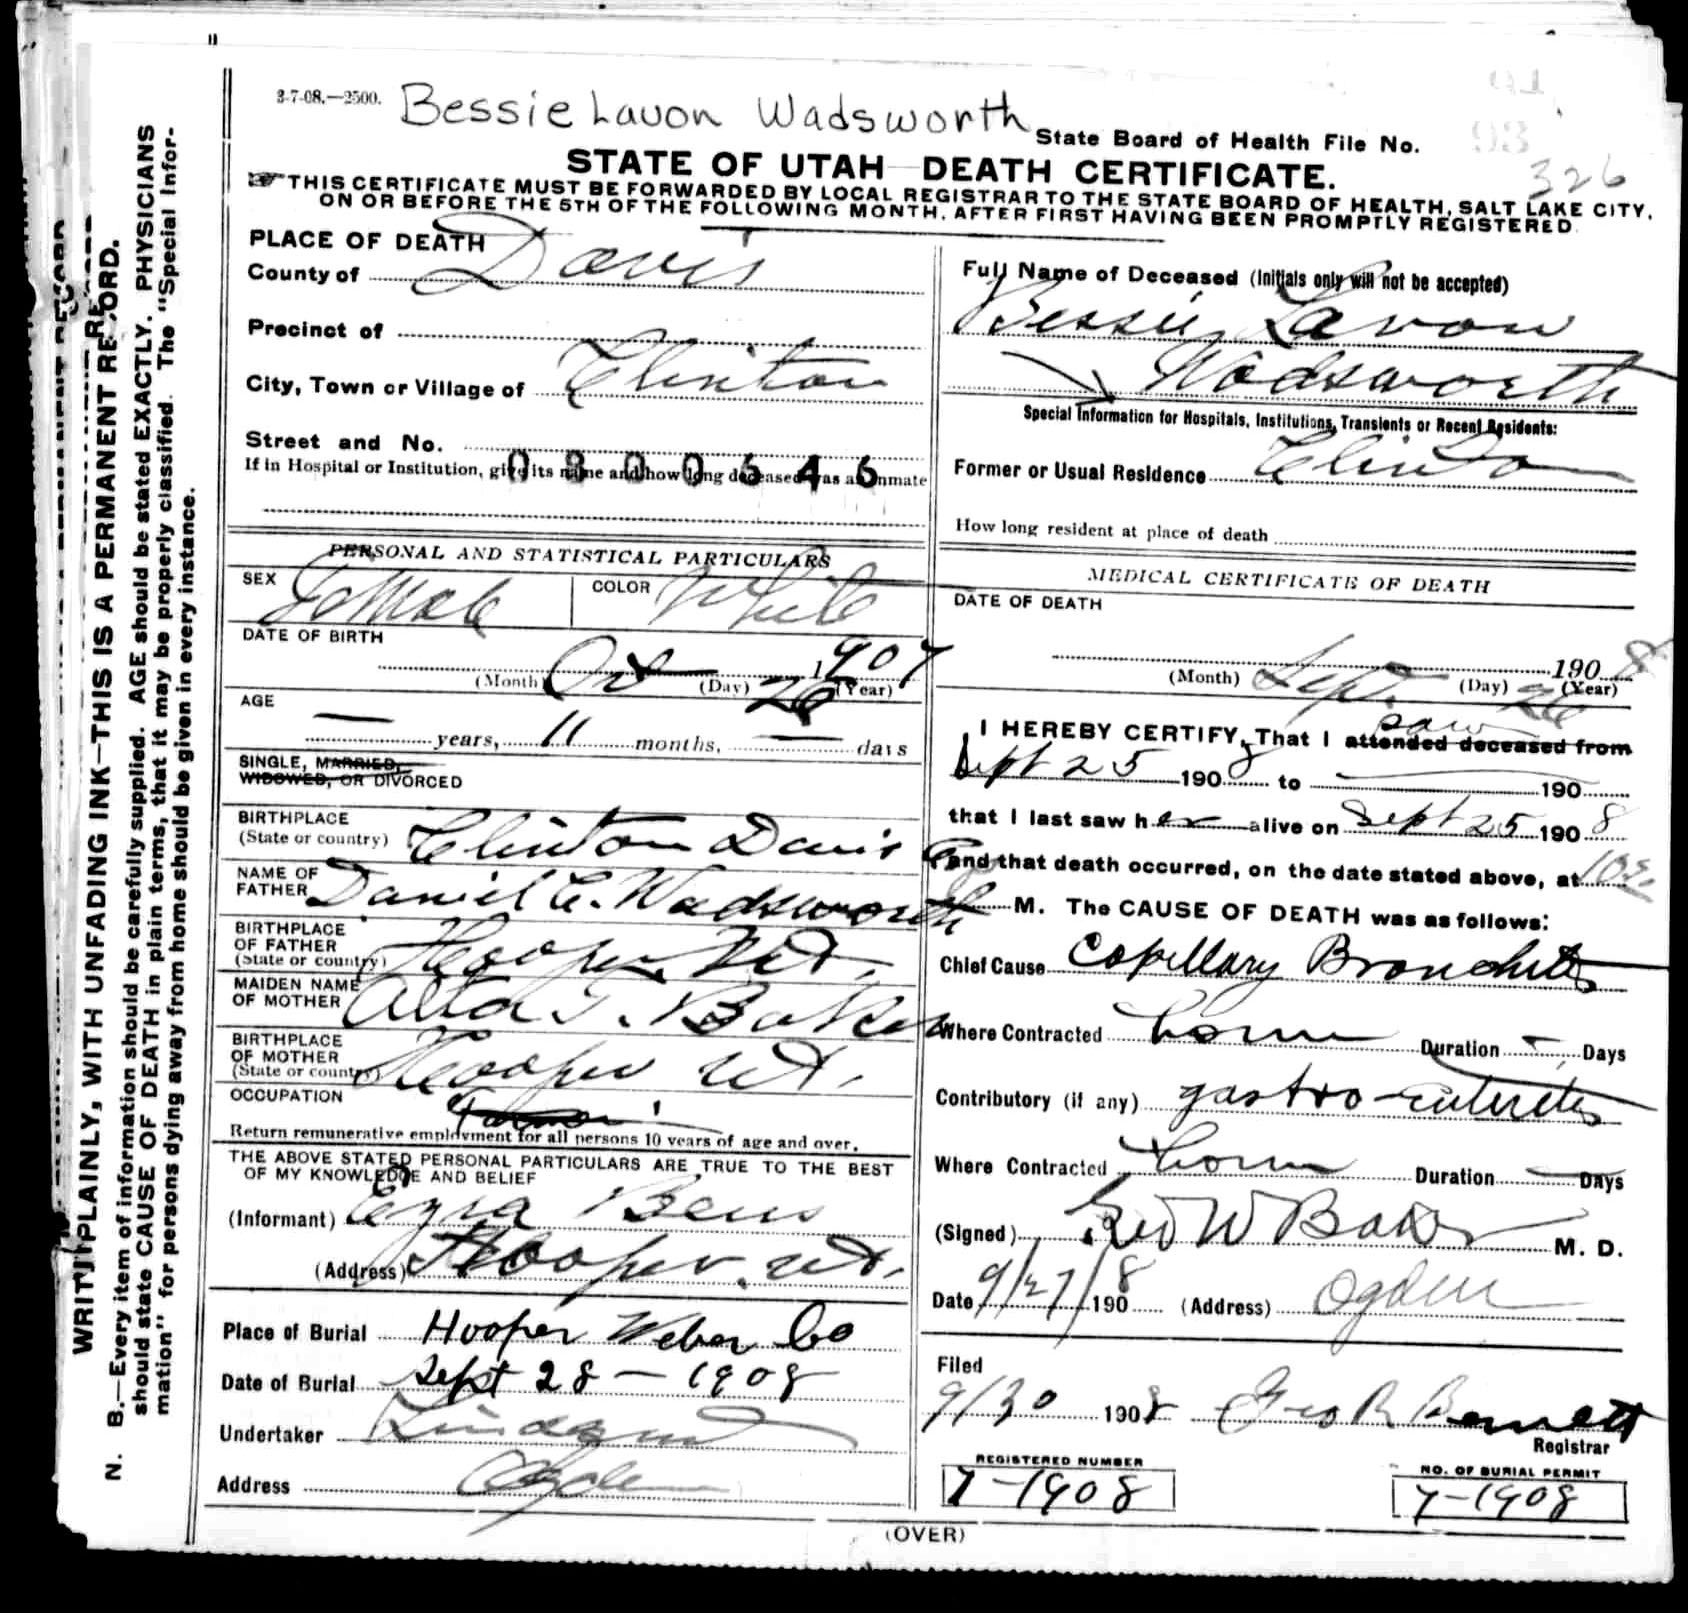 3-7-08.—2500. Bessie Lavon Wadsworth
State Board of Health File No. 93
326
STATE OF UTAH—DEATH CERTIFICATE.
THIS CERTIFICATE MUST BE FORWARDED BY LOCAL REGISTRAR TO THE STATE BOARD OF HEALTH, SALT LAKE CITY,
ON OR BEFORE THE 5TH OF THE FOLLOWING MONTH, AFTER FIRST HAVING BEEN PROMPTLY REGISTERED.
PLACE OF DEATH
County of Davis
Precinct of
City, Town or Village of Clinton
Street and No.
If in Hospital or Institution, give its name and how long deceased was an inmate
PERSONAL AND STATISTICAL PARTICULARS
SEX Female COLOR White
DATE OF BIRTH
(Month) Oct (Day) 26 1907 (Year)
AGE
— years, 11 months, — days
SINGLE, MARRIED,
WIDOWED, OR DIVORCED
BIRTHPLACE
(State or country) Clinton Davis Co
NAME OF
FATHER Daniel C. Wadsworth
BIRTHPLACE
OF FATHER
(State or country) Hooper Ut.
MAIDEN NAME
OF MOTHER Alta T. Baker
BIRTHPLACE
OF MOTHER
(State or country) Hooper Ut.
OCCUPATION
Return remunerative employment for all persons 10 years of age and over.
THE ABOVE STATED PERSONAL PARTICULARS ARE TRUE TO THE BEST
OF MY KNOWLEDGE AND BELIEF
(Informant) Ezra Beus
(Address) Hooper, Ut.
Place of Burial Hooper Weber Co
Date of Burial Sept 28 — 1908
Undertaker Lindquist
Address Ogden
Full Name of Deceased (Initials only will not be accepted)
Bessie Lavon
Wadsworth
Special Information for Hospitals, Institutions, Transients or Recent Residents:
Former or Usual Residence Clinton
How long resident at place of death
MEDICAL CERTIFICATE OF DEATH
DATE OF DEATH
(Month) Sept. (Day) 26 1908 (Year)
saw
I HEREBY CERTIFY, That I attended deceased from
Sept 25 1908 to — 190
that I last saw her alive on Sept 25 1908
and that death occurred, on the date stated above, at
M. The CAUSE OF DEATH was as follows:
Chief Cause Capillary Bronchitis
Where Contracted home Duration — Days
Contributory (if any) gastro-enteritis
Where Contracted home Duration — Days
(Signed) Geo W Baker M. D.
Date 9/27/1908 (Address) Ogden
Filed
9/30 1908 Geo R Bennett
Registrar
REGISTERED NUMBER
7-1908
NO. OF BURIAL PERMIT
7-1908
(OVER)
WRITE PLAINLY, WITH UNFADING INK—THIS IS A PERMANENT RECORD.
N. B.—Every item of information should be carefully supplied. AGE should be stated EXACTLY. PHYSICIANS
should state CAUSE OF DEATH in plain terms, that it may be properly classified. The "Special Infor-
mation" for persons dying away from home should be given in every instance.